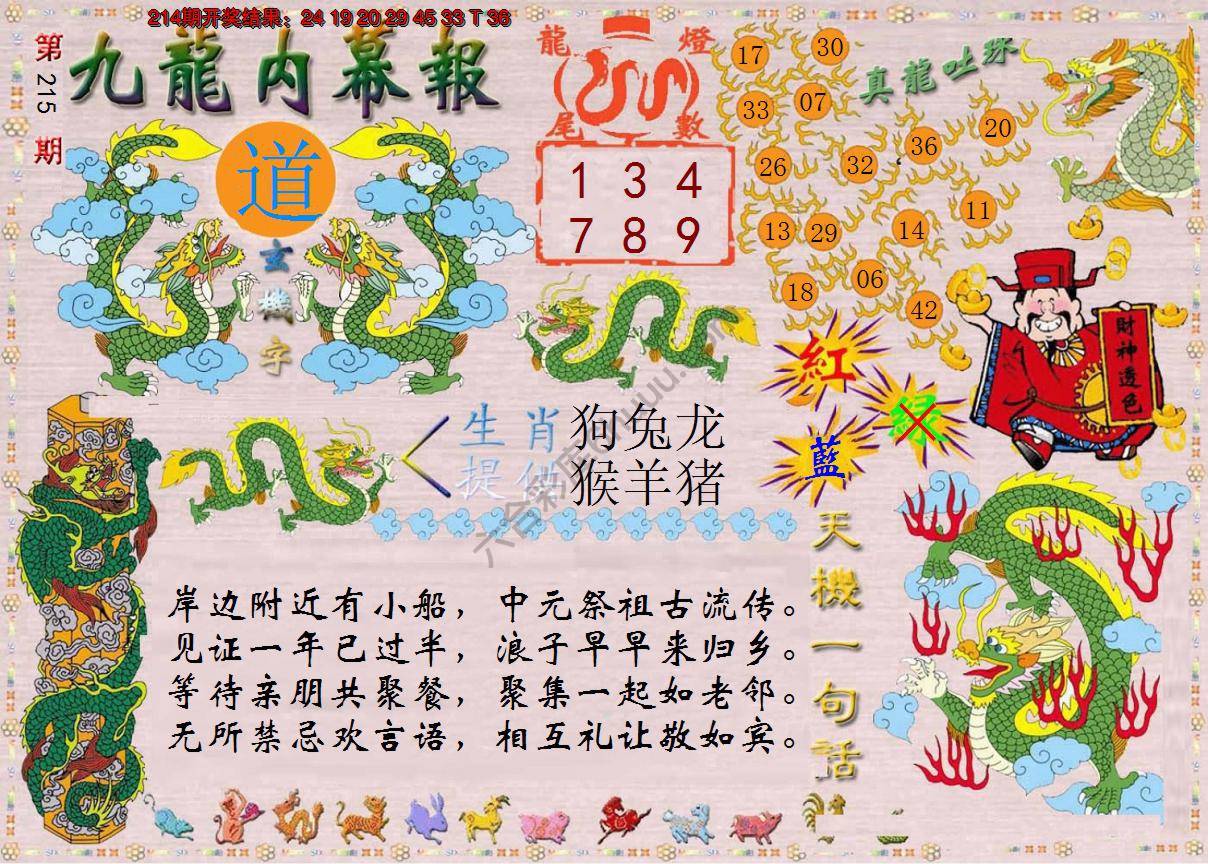 214期开奖结果：24 19 20 29 45 33 T 36
第215期
九龍内幕報
道
玄機字
龍燈
尾數
1 3 4
7 8 9
真龍吐珠
17 30
33 07
26 32 36 20
13 29 14 11
18 06 42
紅
綠
藍
財神透色
生肖 狗兔龙
提供 猴羊猪
天機一句話
岸边附近有小船，中元祭祖古流传。
见证一年已过半，浪子早早来归乡。
等待亲朋共聚餐，聚集一起如老邻。
无所禁忌欢言语，相互礼让敬如宾。